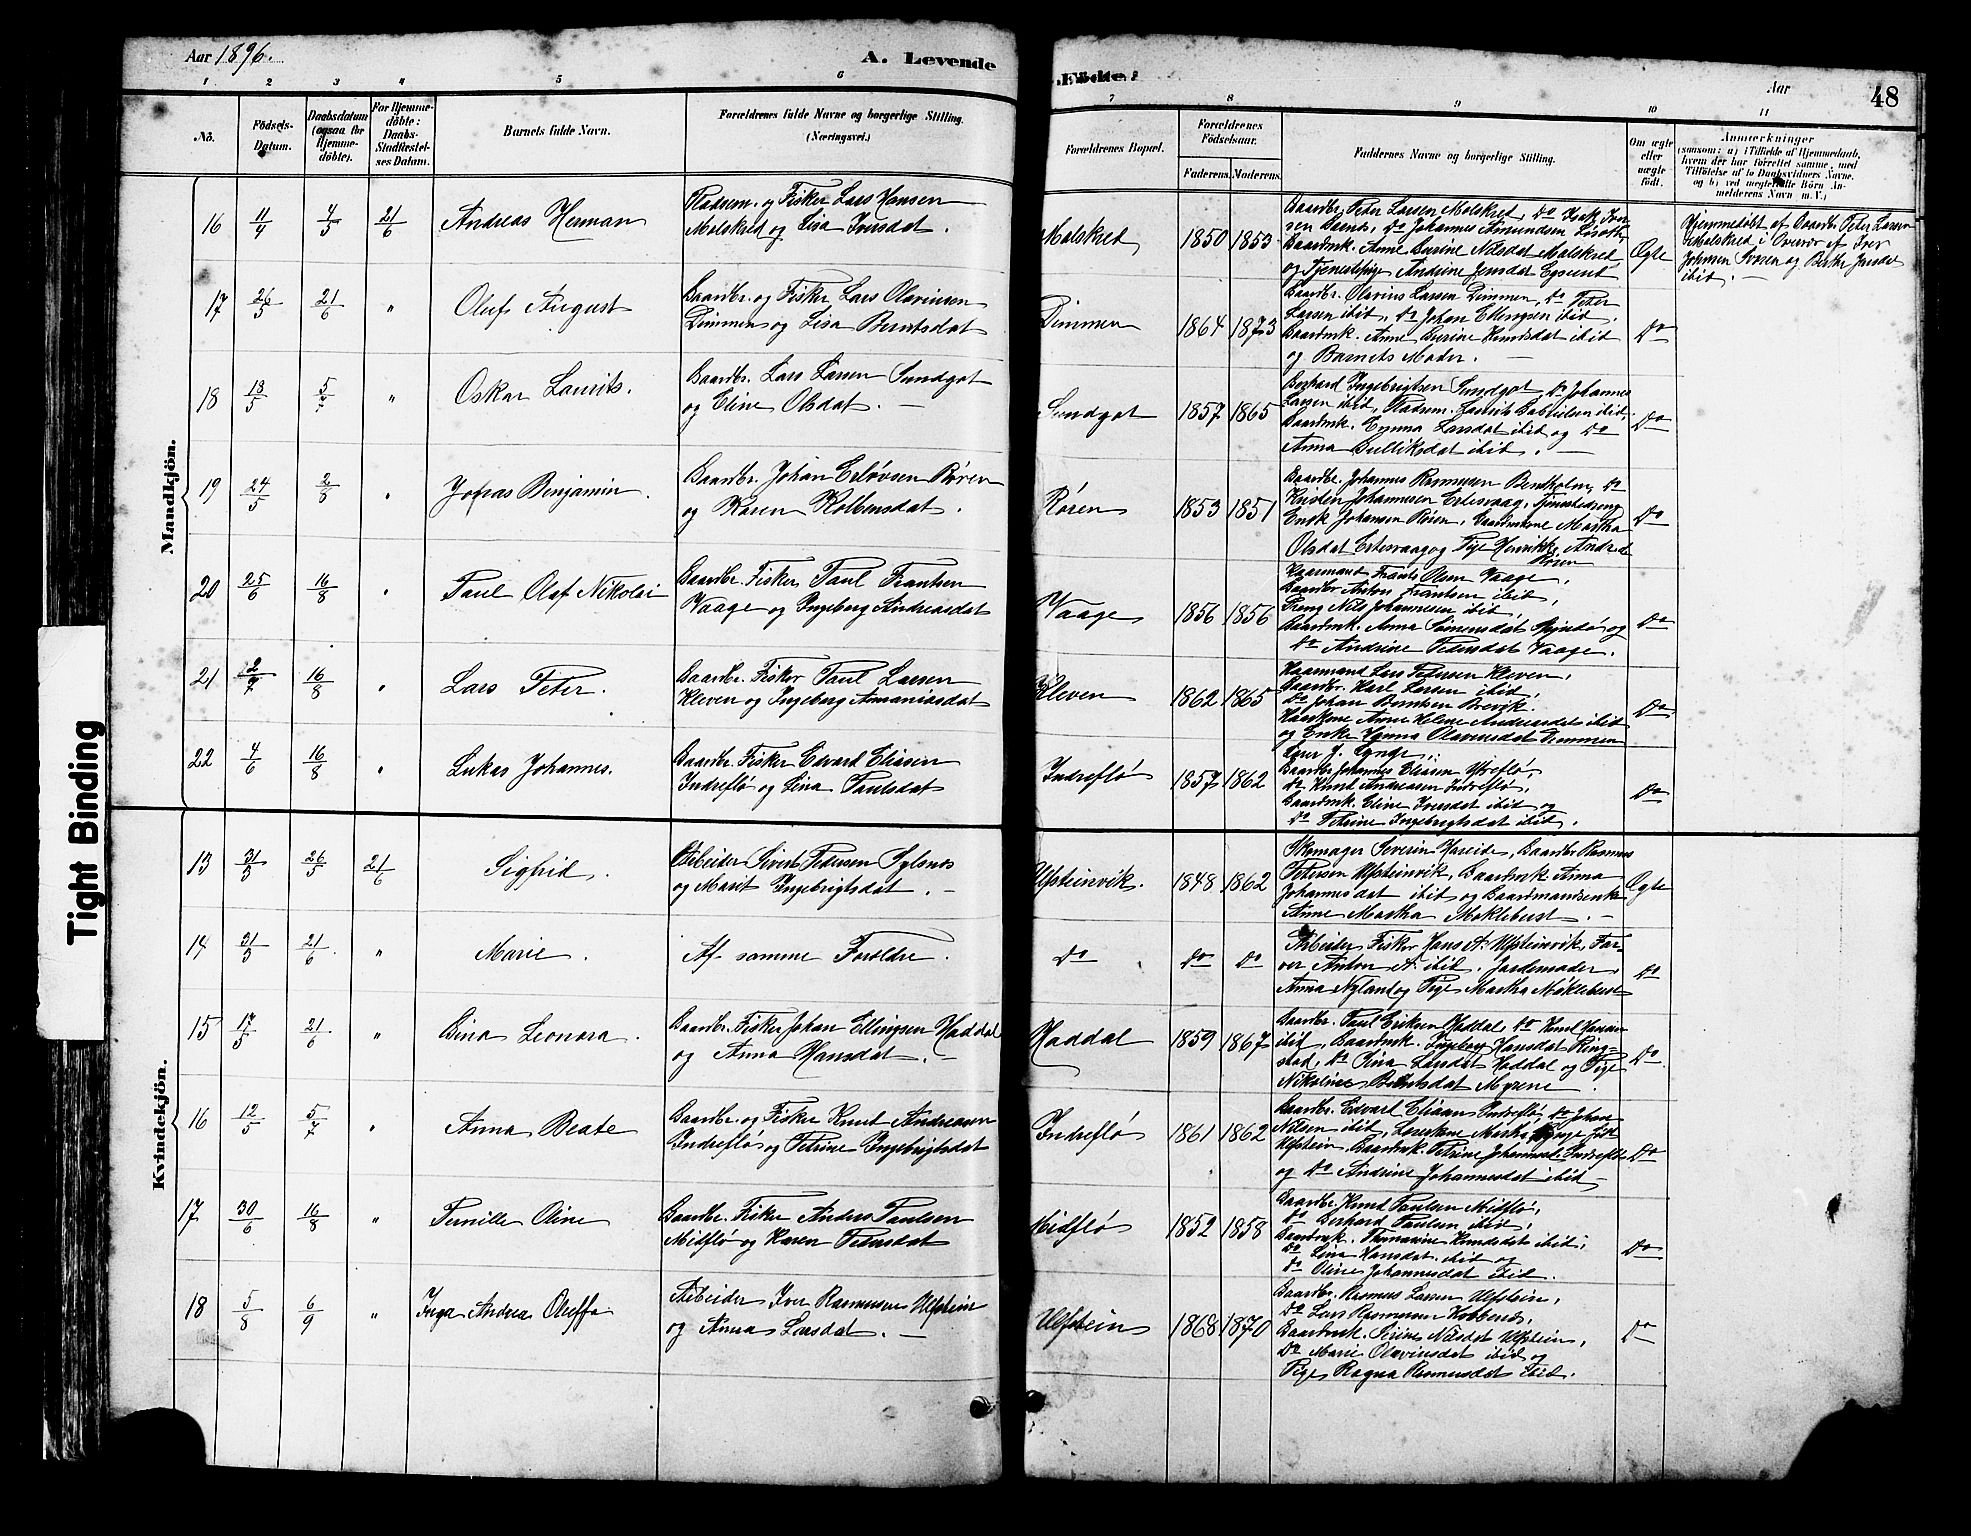 Aar 1896.
A. Levende
Fødte.
Aar
48
1 2 3 4 5 6
7 8 9 10 11
No.
Fødsels-
Datum.
Daabsdatum
(ogsaa for
Hjemme-
døbte).
For Hjemme-
døbte:
Daabs-
Stadfæstel-
ses Datum.
Barnets fulde Navn.
Forældrenes fulde Navne og borgerlige Stilling.
(Næringsvei.)
Forældrenes Bopæl.
Forældrenes
Fødselsaar.
Faderens. Moderens.
Faddernes Navne og borgerlige Stilling.
Om ægte
eller
uægte
født.
Anmærkninger
(saasom: a) i Tilfælde af Hjemmedaab,
hvem der har forrettet samme, med
Tilføielse af to Daabsvidners Navne.
og b) ved uægtefødte Børn An-
melderens Navn m. V.)
Mandkjön.
16
11/4
4/5
21/6
Andreas Herman
Pladsm. og Fisker Lars Hansen
Molskred og Lisa Iversdat.
Molskred
1850 1853
Gaardbr. Peter Larsen Molskred, Do Isak Iver-
sen Do Johannes Amundsen
Gaardmk. Anne Nilsdat Molskred
og Tjenestepige Andrine Jensdat Eysund
Ægte
Hjemmedøbt af Gaardbr Peter Larsen
Molskred i Overvær af Iver
Johnsen og Berthe Jensdat
ibid.
17
26/5
21/6
"
Oluf August
Gaardbr. og Fisker Lars Olavinsen
Dimmen og Lisa Berntsdat
Dimmen
1864 1873
Gaardbr. Olavius Larsen Dimmen, Do Peter
Larsen ibid, Do Johan Ellingsen ibid.
Gaardmk. Anne Knudsdat ibid
og Barnets Moder. —
Do
18
13/5
5/7
"
Oskar Laurits.
Gaardbr. Lars Larsen Sundgot
og Eline Olsdat. —
Sundgot
1857 1865
Gerhard Ingebrigtsen Sundgot, Do Johannes
Larsen ibid, Pladsm. Gabrielsen ibid,
Gaardmk. Emma Larsdat ibid og Do
Anna Gulliksdat ibid. —
Do
19
24/5
2/8
"
Jonas Benjamin.
Gaardbr. Johan Erlövsen Røren
og Karen Kolbensdat.
Røren
1853 1851
Gaardbr. Johannes Rasmussen Bentholm, Do
Kristen Johannesen Ertesvaag, Tjenestedreng
Johansen Røren, Gaardmkone Martha
Olsdat Ertesvaag og Pige Henrikke Andr.d.
Røren
Do
20
25/6
16/8
"
Paul Olaf Nikolai
Gaardbr. Fisker Paul Frantsen
Vaage og Ingeborg Andreasdat
Vaage
1856 1856
Kaarmand Frants Olsen Vaage,
Gaardbr Anton Frantsen ibid,
Dreng Nils Johannesen ibid,
Gaardmk. Anna og
Do Andrine Pedersdat Vaage.
Do
21
2/7
16/8
"
Lars Peter.
Gaardbr. Fisker Paul Larsen
Kleven og Ingeborg Ananiasdat
Kleven
1862 1865
Kaarmand Lars Pedersen Kleven,
Gaardbr. Karl Larsen ibid,
Do Johan Berntsen Brevik.
Kaarkone Anne Helene Andreasdat ibid
og Enke Hanna Olavinsdat Dimmen
Do
22
4/6
16/8
"
Lukas Johannes.
Gaardbr. Fisker Edvard Eliasen
Indreflø og Lina Paulsdat
Indreflø
1857 1862
Lærer J. Lyngt.
Gaardbr Johannes Eliasen Ytreflø,
Do Knud Andreasen Indreflø,
Gaardmk. Eline Iversdat ibid og
Do Petrine Ingebrigtsdat ibid.
Do
Kvindekjön.
13
31/3
26/5
21/6
Sigfrid.
Arbeider Sivert Pedersen Sylsnes
og Marit Ingebrigtsdat. —
Ulfsteinvik.
1848 1862
Skomager Severin Hareide, Gaardbr Rasmus
Petersen Ulfsteinvik, Gaardmk Anna
Johannesdat ibid og Gaardmandsenke
Anne Martha Moklebust. —
Ægte
14
31/3
21/6
"
Marie.
Af samme Forældre.
Do
Do Do
Arbeider Fisker Hans A. Ulfsteinvik, Far-
ver Anton A. ibid. Jordemoder
Anna Nyland og Pige Martha Møklebust
Do
15
17/5
21/6
"
Gina Leonora.
Gaardbr. Fisker Johan Ellingsen Haddal
og Anna Hansdat. —
Haddal
1859 1867
Gaardbr. Paul Eriksen Haddal, Do Knud Hansen
ibid, Gaardmk. Ingeborg Hansdat Ring-
stad, Do Sina Larsdat Haddal og Pige
Nikoline Berntsdat Myrene
Do
16
12/5
5/7
"
Anna Beate
Gaardbr. og Fisker Knut Andreasen
Indreflø og Petrine Ingebrigtsdat
Indreflø
1861 1862
Gaardbr. Edvard Eliasen Indreflø, Do Johan
Nilsen ibid, Lærerkone Martha
Ulfstein, Gaardmk. Petrine Johannesd. Indreflø
og Do Andrine Johannesdat ibid
Do
17
30/6
16/8
"
Pernille Oline
Gaardbr. Fisker Anders Paulsen
Midflø og Karen Pedersdat
Midflø
1852 1858
Gaardbr. Knud Paulsen Midflø,
Do Gerhard Paulsen ibid,
Gaardmk. Thomasine Knudsdat ibid,
Do Lina Hansdat ibid og
Do Oline Johannesdat ibid.
Do
18
5/8
6/9
"
Inga Andrea Oluffa
Arbeider Iver Rasmussen Ulfstein
og Anna Larsdat. —
Ulfstein
1868 1870
Gaardbr. Rasmus Larsen Ulfstein,
Do Lars Rasmussen
Gaardmk. Nilsdat Ulfstein,
Do Marie Olavinsdat ibid og
Pige Ragna Rasmusdat ibid.
Do
Tight Binding